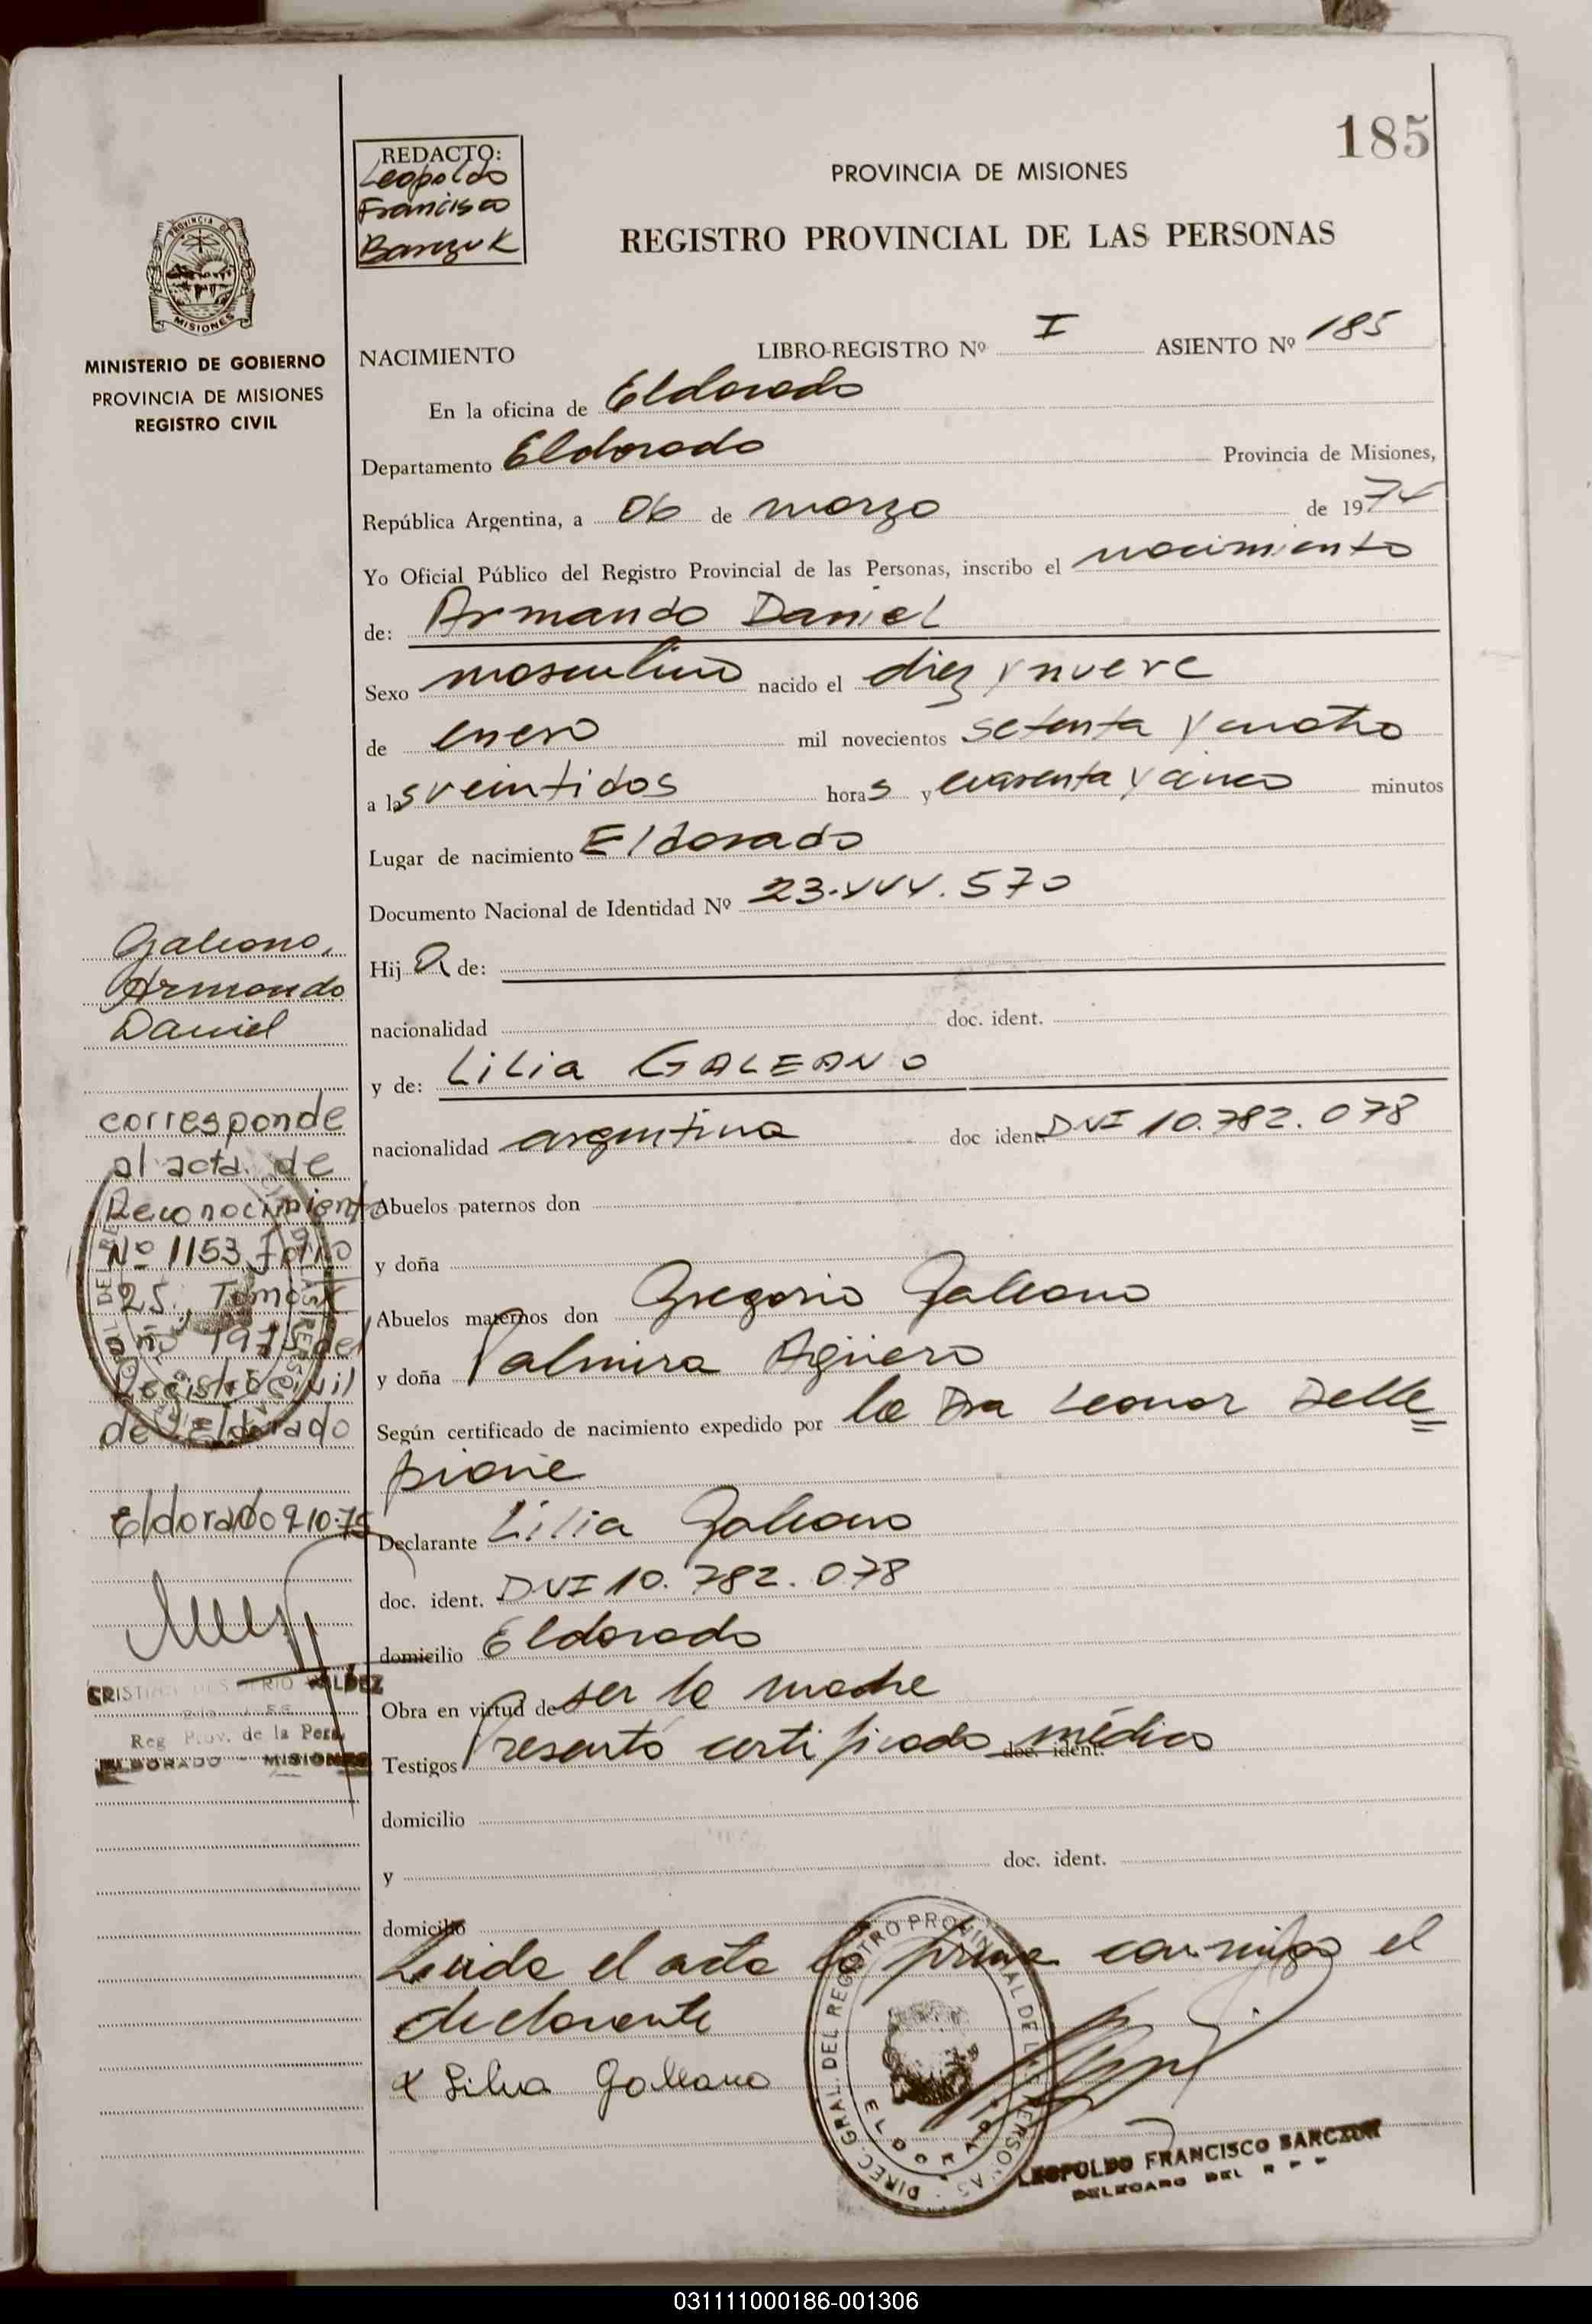 185
REDACTO:
Leopoldo
Francisco
Barczuk
PROVINCIA DE MISIONES
REGISTRO PROVINCIAL DE LAS PERSONAS
PROVINCIA DE
MISIONES
MINISTERIO DE GOBIERNO
PROVINCIA DE MISIONES
REGISTRO CIVIL
NACIMIENTO LIBRO-REGISTRO Nº I ASIENTO Nº 185
En la oficina de Eldorado
Departamento Eldorado Provincia de Misiones,
República Argentina, a 06 de marzo de 1974
Yo Oficial Público del Registro Provincial de las Personas, inscribo el nacimiento
de: Armando Daniel
Sexo masculino nacido el diez y nueve
de enero mil novecientos setenta y cuatro
a las veintidos horas y cuarenta y cinco minutos
Lugar de nacimiento Eldorado
Documento Nacional de Identidad Nº 23.444.570
Hij o de:
nacionalidad doc. ident.
y de: Lilia GALEANO
nacionalidad argentina doc ident. DNI 10.782.078
Abuelos paternos don
y doña
Abuelos maternos don Gregorio Galeano
y doña Valmira Agüero
Según certificado de nacimiento expedido por la Dra Leonor Delle=
piane
Declarante Lilia Galeano
doc. ident. DNI 10.782.078
domicilio Eldorado
Obra en virtud de ser la madre
Testigos Presentó certificado médico doc. ident.
domicilio
y doc. ident.
domicilio
Leida el acta la firma conmigo el
declarante
x Lilia Galeano
DIREC. GRAL. DEL REGISTRO PROVINCIAL DE LAS PERSONAS
ELDORADO
LEOPOLDO FRANCISCO BARCZUK
DELEGADO DEL R P P
Galeano,
Armando
Daniel
corresponde
al acta de
Reconocimiento
Nº 1153 Folio
25, Tomo
año 1975 del
Registro Civil
de Eldorado
Eldorado 9 10-75
VALDEZ
Reg Prov. de la Pers.
ELDORADO - MISIONES
031111000186-001306